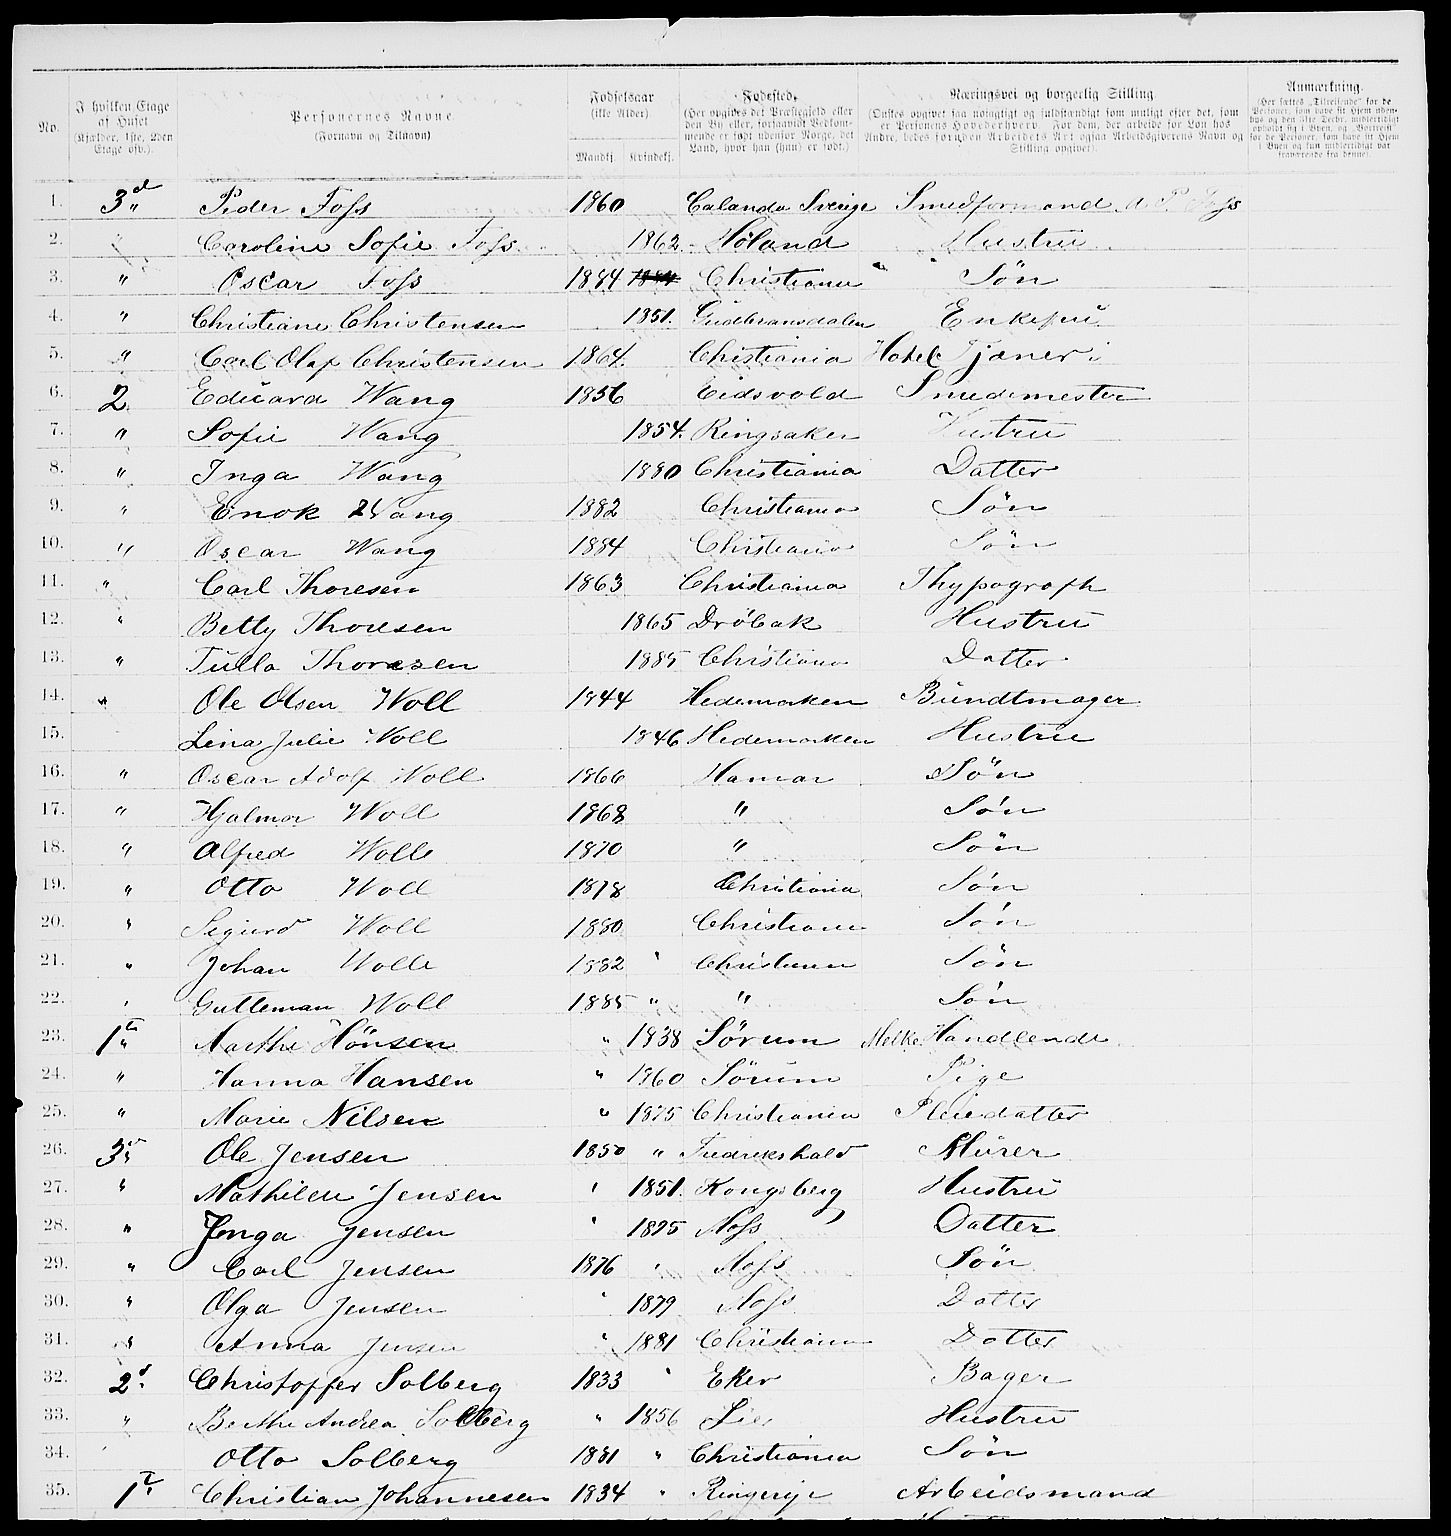 No. I hvilken Etage af Huset (Kjælder, 1ste, 2den Etage osv.). Personernes Navne (Fornavn og Tilnavn) Fødselsaar (ikke Alder) Mandkj. Kvindekj. Fødested. (Her opgives det Præstegjeld eller den By eller, forsaavidt Personerne er født udenfor Norge, det Land, hvor han (hun) er født.) Næringsvei og borgerlig Stilling. (Ønskes opgivet saa nøiagtigt og fuldstændigt som muligt efter det, som er Personens Hovederhverv. For dem, der arbeide for Løn hos Andre, bedes foruden Arbeidets Art ogsaa Arbeidsgiverens Navn og Stilling opgivet). Anmærkning.
1. 3d " Peder Foss 1860 Calanda Sverige Smedformand P. Foss
2. " Caroline Sofie Foss 1862 Höland Hustru
3. " Oscar Foss 1884 1884 Christiania Sön
4. " Christiane Christensen 1851. Gudbransdalen Enkefru
5. " Carl Olaf Christensen 1864. Chistiania Hotel Tjener
6. 2 Eduard Wang 1856 Eidsvold Smedemester
7. " Sofie Wang 1854. Ringsaker Hustru
8. " Inga Wang 1880 Christiania Datter
9. " Enok Wang 1882 Christiania Sön
10. " Oscar Wang 1884 Christiania Sön
11. " Carl Thoresen 1863 Christiania Thypograph
12. " Betty Thoresen 1865 Dröbak Hustru
13. " Tulla Thoresen 1885 Christiania Datter
14. " Ole Olsen Woll 1844 Hedemarken Bundtmager
15. Lina Julie Woll 1846 Hedemarken Hustru
16. " Oscar Adolf Woll 1866 Hamar Sön
17. " Hjalmar Woll 1868 " Sön
18. " Alfred Woll 1870 " Sön
19. " Otto Woll 1878 Christiania Sön
20. " Sigurd Woll 1880 Christiania Sön
21. " Johan Woll 1882 " Christiania Sön
22. " Gutteman Woll 1885 " " Sön
23. 1te " Marthe Hönsen " 1838 Sörum Melke Handlende
24. " Hanna Hansen " 1860 Sörum Pige
25. " Marie Nilsen " 1875 Christiania Pleiedatter
26. 3d " Ole Jensen 1850 " Fredrikshald Murer
27. " Mathilde Jensen " 1851. Kongsberg Hustru
28. " Inga Jensen " 1875 Moss Datter
29. " Carl Jensen 1876 " Moss Sön
30. " Olga Jensen " 1879 Moss Datter
31. " Anna Jensen " 1881 Christiania Datter
32. 2d " Christoffer Solberg 1833 " Eker Bager
33. " Berthe Andrea Solberg " 1856 Lier Hustru
34. " Otto Solberg 1881 " Christiania Sön
35. 1te " Christian Johannesen 1834 " Ringerije Arbeidsmand